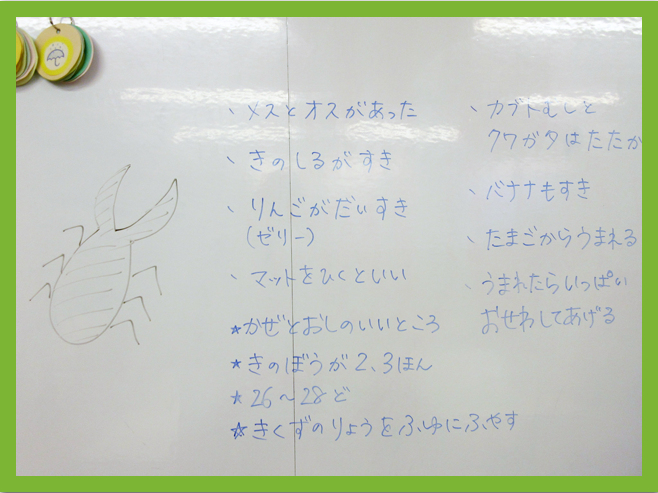 、メスとオスがあった
、きのしるがすき
、りんごがだいすき
(ゼリー)
、マットをひくといい
★かぜとおしのいいところ
★きのぼうが2、3ほん
★26〜28ど
★きくずのりょうをふゆにふやす
、カブトむしと
クワガタはたたか
、バナナもすき
、たまごからうまれる
、うまれたらいっぱい
おせわしてあげる